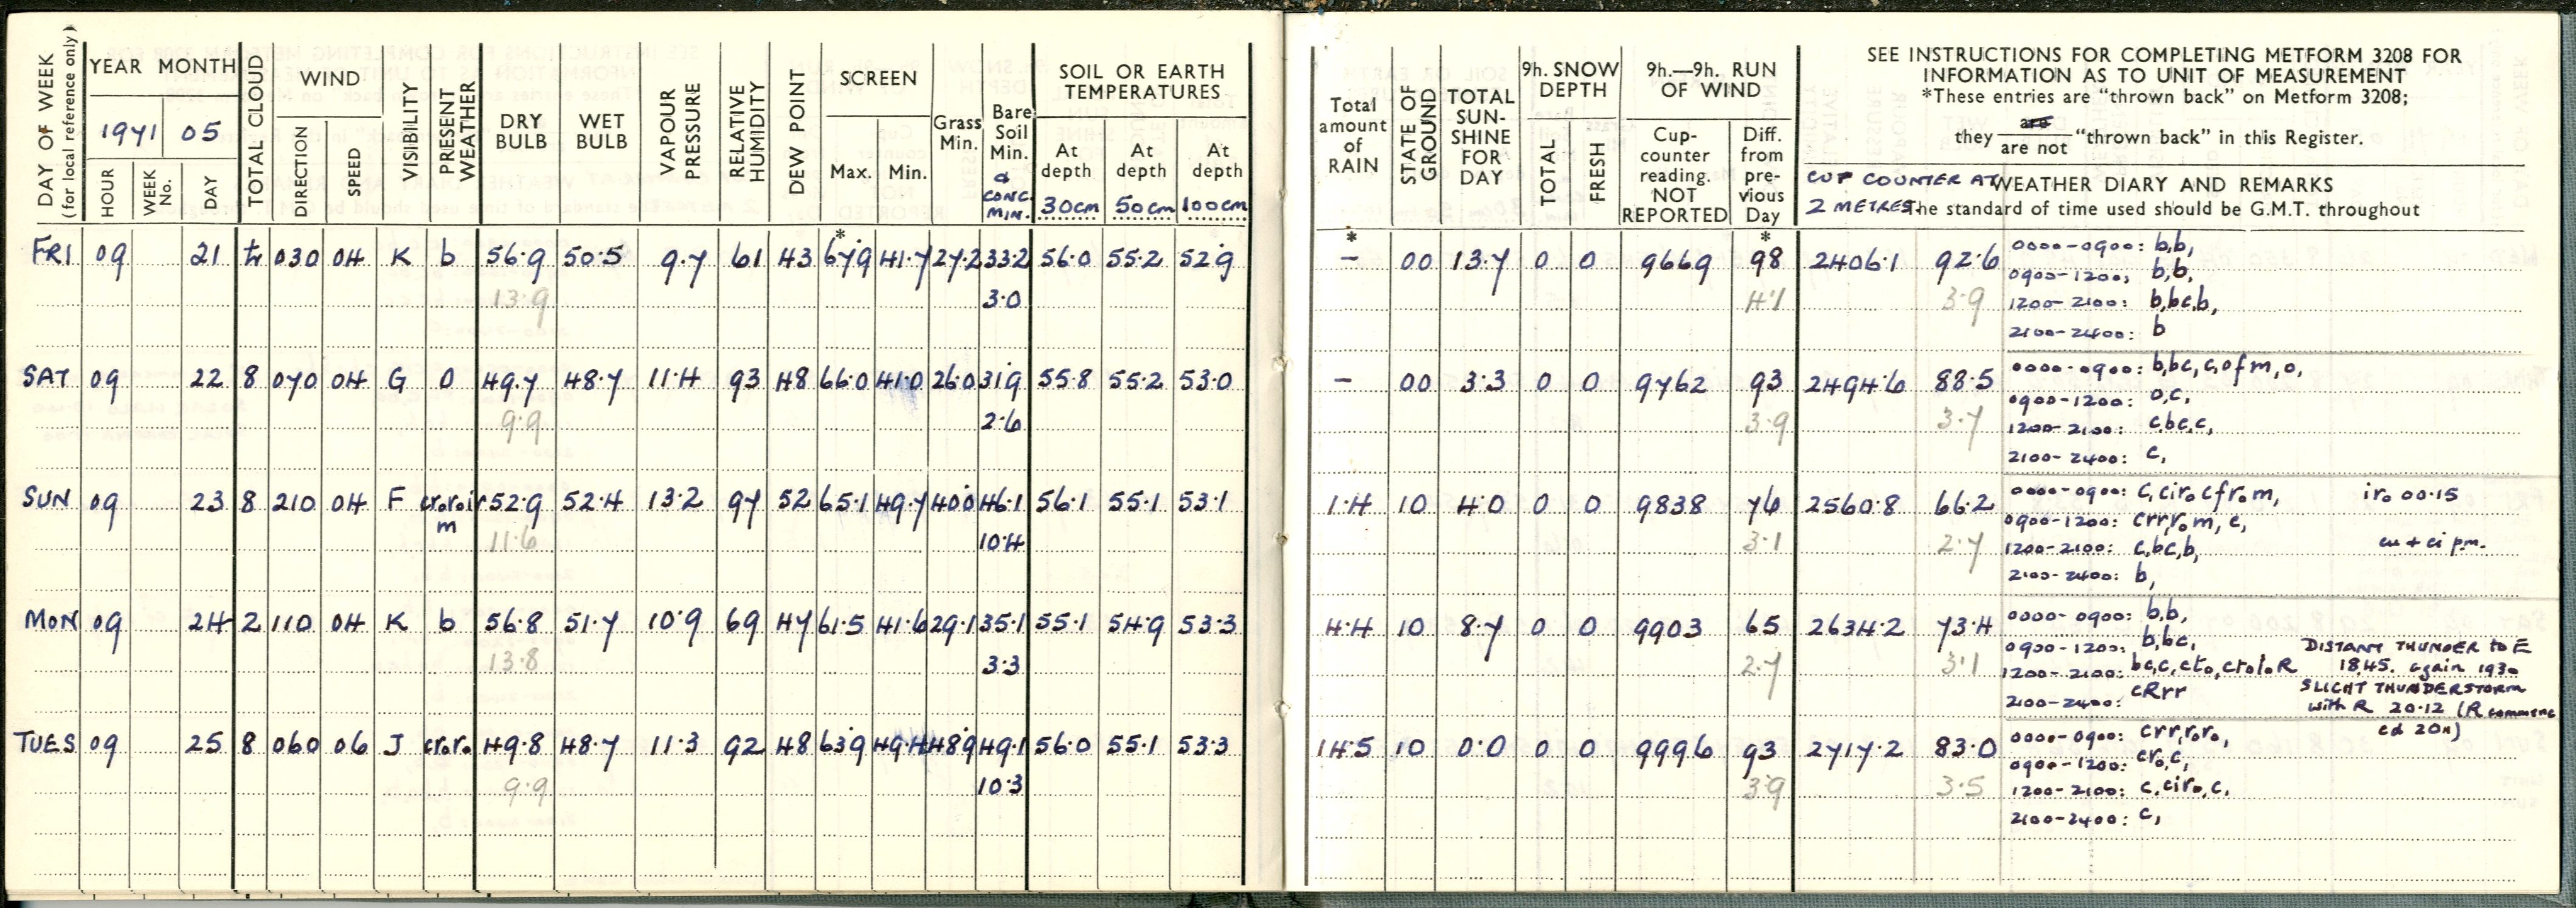 DAY OF WEEK
(for local reference only)
YEAR MONTH
1971 05
HOUR
WEEK No.
DAY
TOTAL CLOUD
WIND
DIRECTION
SPEED
VISIBILITY
PRESENT WEATHER
DRY BULB
WET BULB
VAPOUR PRESSURE
RELATIVE HUMIDITY
DEW POINT
SCREEN
Max. Min.
Grass Min.
Bare Soil Min.
& CONC. MIN.
SOIL OR EARTH TEMPERATURES
At depth 30cm
At depth 50cm
At depth 100cm
Total amount of RAIN
STATE OF GROUND
TOTAL SUN-SHINE FOR DAY
9h. SNOW DEPTH
TOTAL
FRESH
9h.—9h. RUN OF WIND
Cup-counter reading. NOT REPORTED
Diff. from pre-vious Day
SEE INSTRUCTIONS FOR COMPLETING METFORM 3208 FOR
INFORMATION AS TO UNIT OF MEASUREMENT
*These entries are “thrown back” on Metform 3208;
they are / are not “thrown back” in this Register.
CUP COUNTER AT
2 METRES
WEATHER DIARY AND REMARKS
The standard of time used should be G.M.T. throughout
* * *
FRI 09 21 030 04 K b 56.9 50.5 9.7 61 43 67.9 41.7 27.2 33.2 56.0 55.2 52.9 - 00 13.7 0 0 9669 98 2406.1 92.6 0000-0900: b,b,
0900-1200; b,b,
13.9 3.0 4.1 3.9 1200-2100: b,bc,b,
2100-2400: b
SAT 09 22 8 070 04 G O 49.7 48.7 11.4 93 48 66.0 41.0 26.0 31.9 55.8 55.2 53.0 - 00 3.3 0 0 9762 93 2494.6 88.5 0000-0900: b,bc,c,ofm,o,
0900-1200: o,c,
9.9 2.6 3.9 3.7 1200-2100: c,bc,c,
2100-2400: c,
SUN 09 23 8 210 04 F cr₀r₀ir 52.9 52.4 13.2 97 52 65.1 49.7 40.0 46.1 56.1 55.1 53.1 1.4 10 4.0 0 0 9838 76 2560.8 66.2 0000-0900: c,cir₀cfr₀m, ir₀ 00.15
m
0900-1200: crrr₀m, c,
11.6 10.4 3.1 2.7 1200-2100: c,bc,b, cu + ci p.m.
2100-2400: b,
MON 09 24 2 110 04 K b 56.8 51.7 10.9 69 47 61.5 41.6 29.1 35.1 55.1 54.9 53.3 4.4 10 8.7 0 0 9903 65 2634.2 73.4 0000-0900: b,b,
0900-1200: b,bc, DISTANT THUNDER to E
13.8 3.3 2.7 3.1 1200-2100: bc,c,ct₀,cr₀t₀R 1845. again 1930
2100-2400: cRrr SLIGHT THUNDERSTORM
with R 20.12 (R commenc
ed 20
TUES 09 25 8 060 06 J cr₀r₀ 49.8 48.7 11.3 92 48 63.9 49.4 48.9 49.1 56.0 55.1 53.3 14.5 10 0.0 0 0 9996 93 2717.2 83.0 0000-0900: crr,r₀r₀,
0900-1200: cr₀,c,
9.9 10.3 3.9 3.5 1200-2100: c,cir₀,c,
2100-2400: c,